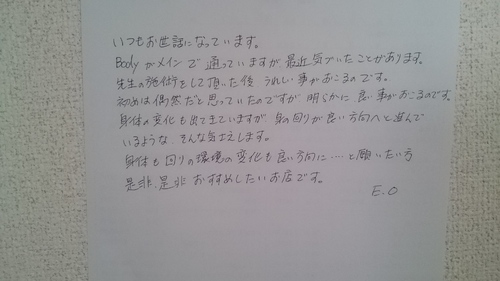 いつもお世話になっています。
Bodyがメインで通っていますが最近気づいたことがあります。
先生の施術をして頂いた後うれしい事がおこるのです。
初めは偶然だと思っていたのですが明らかに良い事がおこるのです。
身体の変化も出てきていますが身の回りが良い方向へと進んで
いるような、そんな気さえします。
身体も回りの環境の変化も良い方向に……と願いたい方
是非、是非おすすめしたいお店です。
E.O